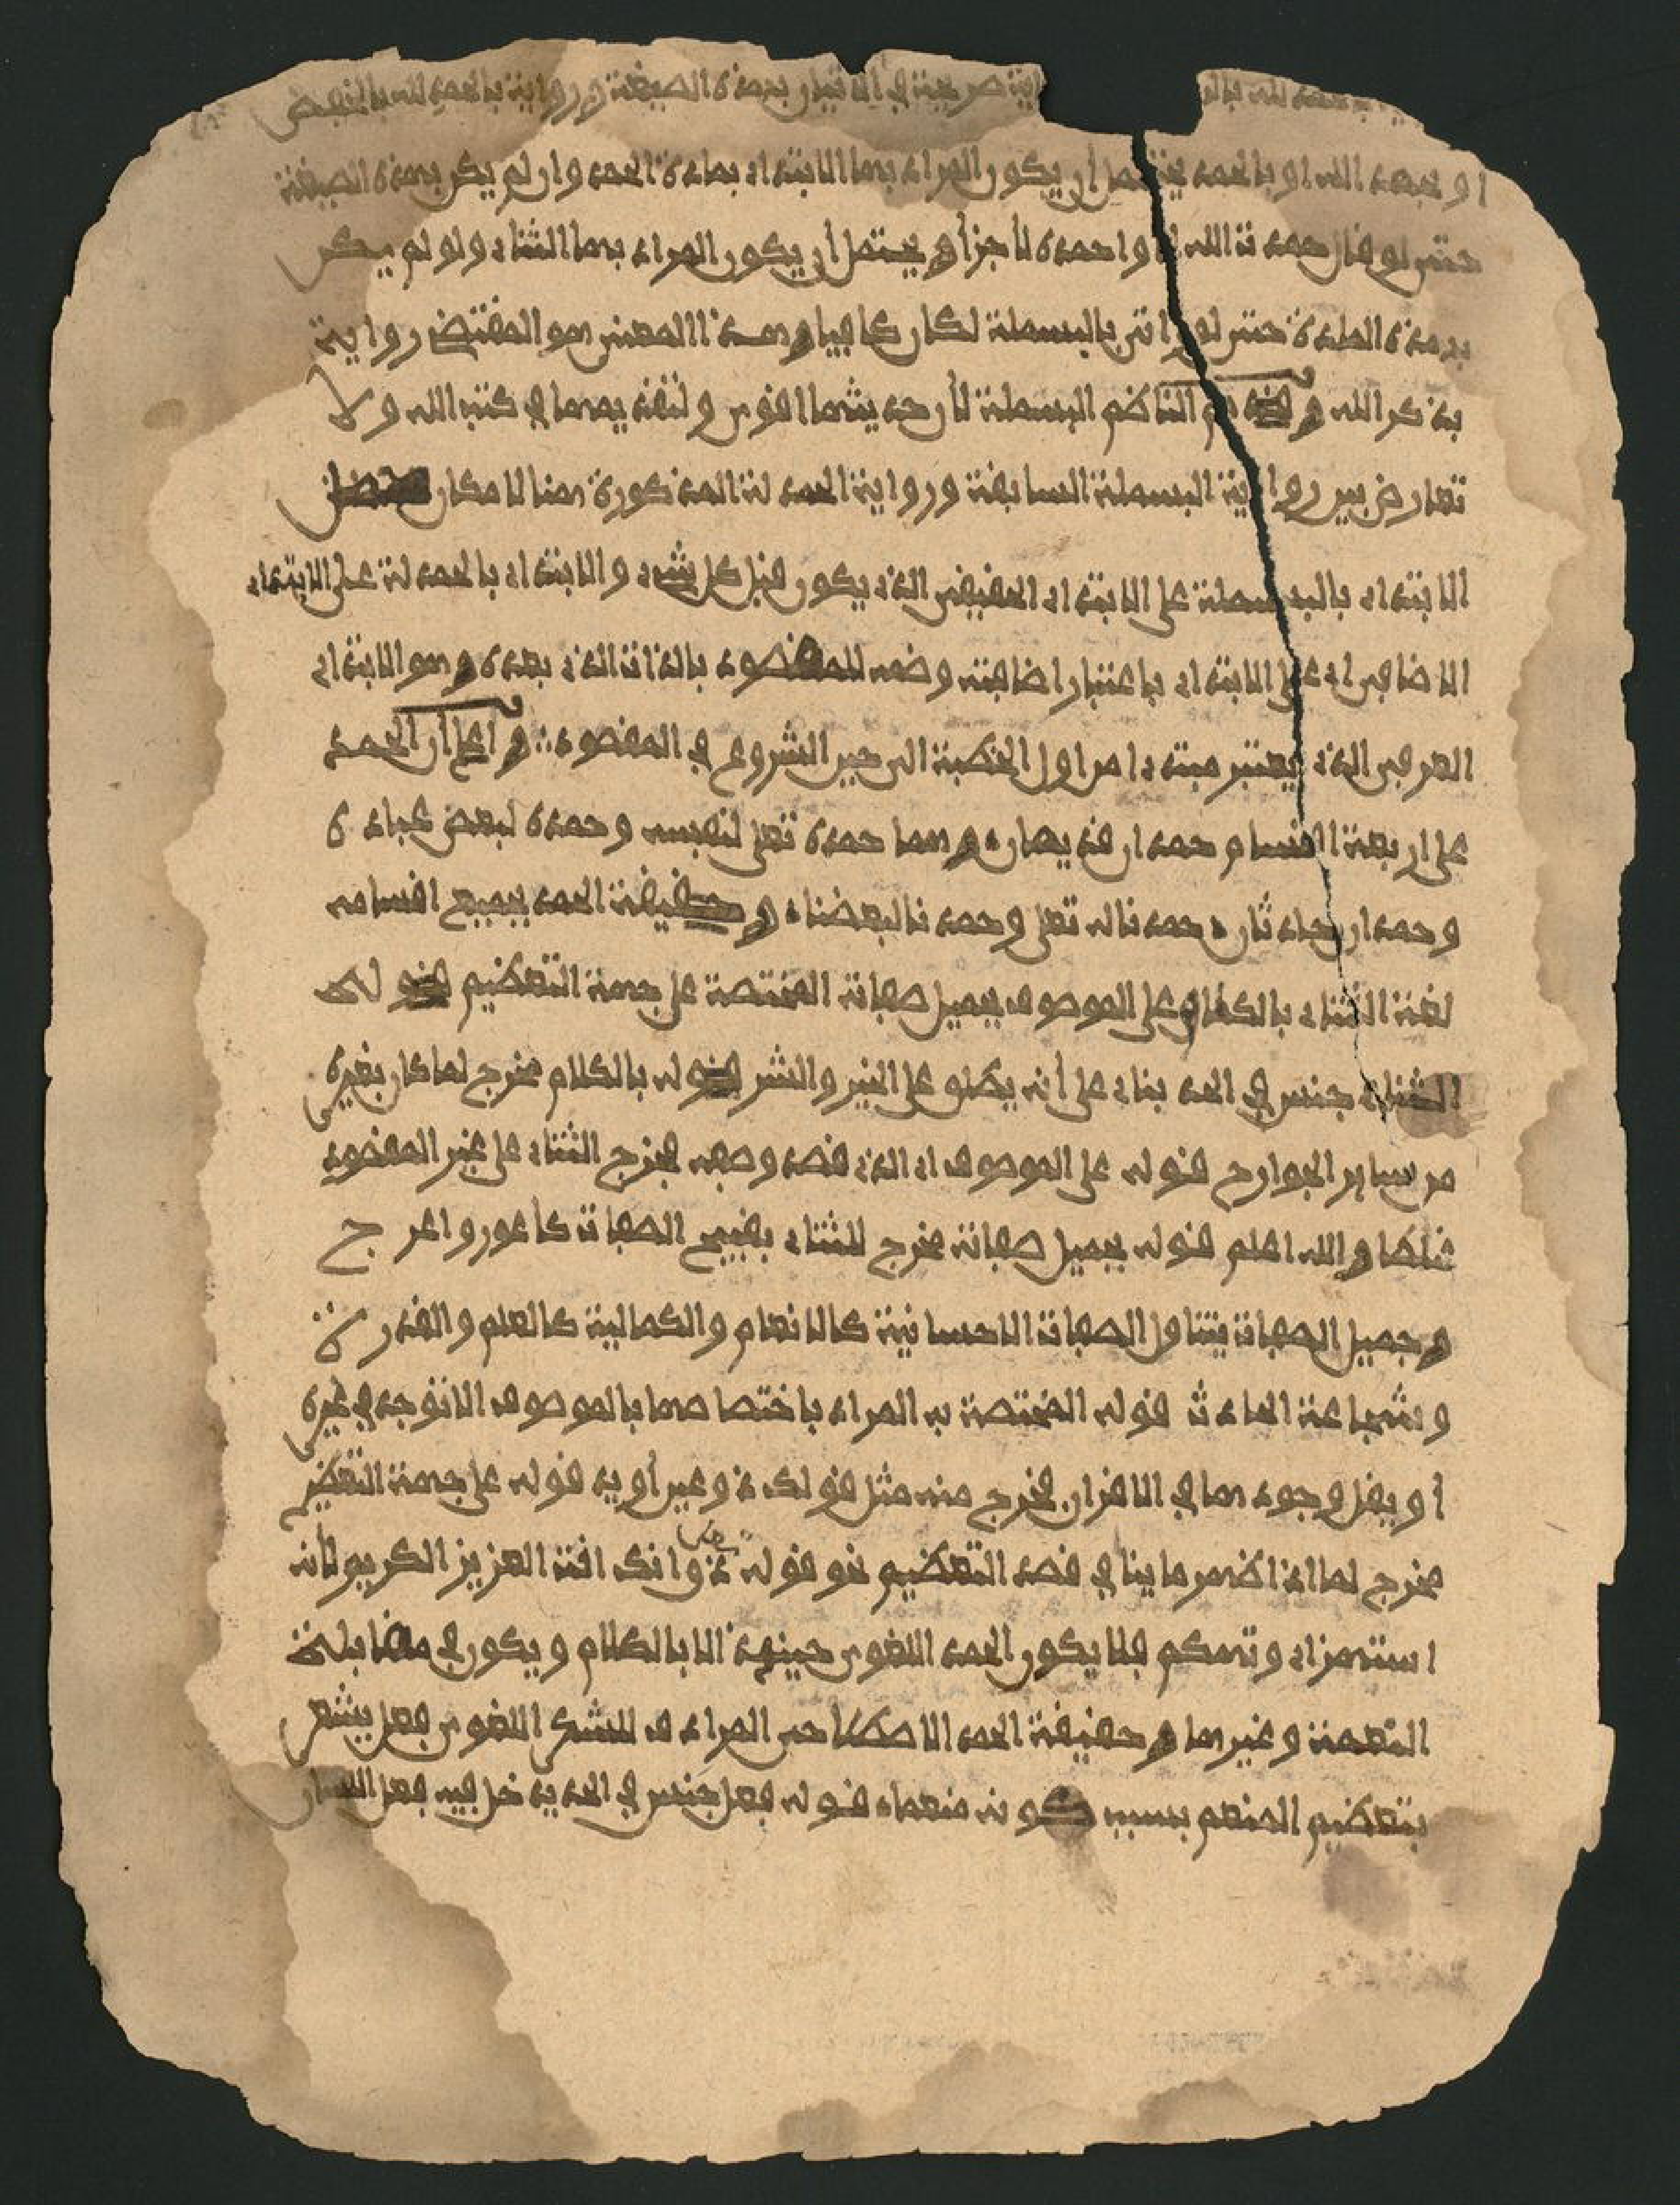 بحمد الله بال اية صريحة في الاتيان بهذه الصيغة ورواية بالحمد لله بالخفض
او بحمد الله او بالحمد يحتمل أن يكون المراد بها الابتداء بمادة الحمد وان لم يكن بهذه الصيغة
حتى لو قال حمدت الله او احمده لأجزأ ويحتمل أن يكون المراد بها الثناء ولو لم يكن
بهذه المادة حتى لو اتى بالبسملة لكان كافيا وهذا المعنى هو المقتضى رواية
بذكر الله وقدم الناظم البسملة لأن حديثها اقوى ولتقديمها في كتب الله ولا
تعارض بين رواية البسملة السابقة ورواية الحمدلة المذكورة هنا لامكان حمل
الابتداء بالبسملة على الابتداء الحقيقي الذي يكون قبل كل شيء والابتداء بالحمدلة على الابتداء
الاضافي اي على الابتداء باعتبار اضافته وضمه للمقصود بالذات الذي بعده وهو الابتداء
العرفي الذي يعتبر مبتدءا من اول الخطبة الى حين الشروع في المقصود ∴ واعلم أن الحمد
على اربعة اقسام حمدان قديمان وهما حمده تعلى لنفسه وحمده لبعض عباده
وحمدان حادثان حمدنا له تعلى وحمدنا لبعضنا وحقيقة الحمد بجميع اقسامه
لغة الثناء بالكلام على الموصوف بجميل صفاته المختصة على جهة التعظيم قوله
الثناء جنس في الحد بناء على أنه يطلق على الخير والشر قوله بالكلام مخرج لما كان بغيره
من ساير الجوارح قوله على الموصوف اي الذي قصد وصفه فيخرج الثناء على غير المقصود
غلطا والله اعلم قوله بجميل صفاته مخرج للثناء بقبيح الصفات كاعور واعرج
وجميل الصفات يتناول الصفات الاحسانية كالانعام والكمالية كالعلم والقدرة
وشجاعة الحادث قوله المختصة به المراد باختصاصها بالموصوف الا توجد في غيره
أو يقل وجودها في الاقران فيخرج منه مثل قولك ذو عين أو يد قوله على جهة التعظيم
مخرج لما اذا ظهر ما ينافي قصد التعظيم نحو قوله تعلى ذق انك انت العزيز الكريم لأنه
استهزاء وتهكم فلا يكون الحمد اللغوي حينئذ الا بالكلام ويكون في مقابلة
النعمة وغيرها وحقيقة الحمد الاصطلاحي المرادف للشكر اللغوي فعل يشعر
بتعظيم المنعم بسبب كونه منعما قوله فعل جنس في الحد يدخل فيه فعل اللسان